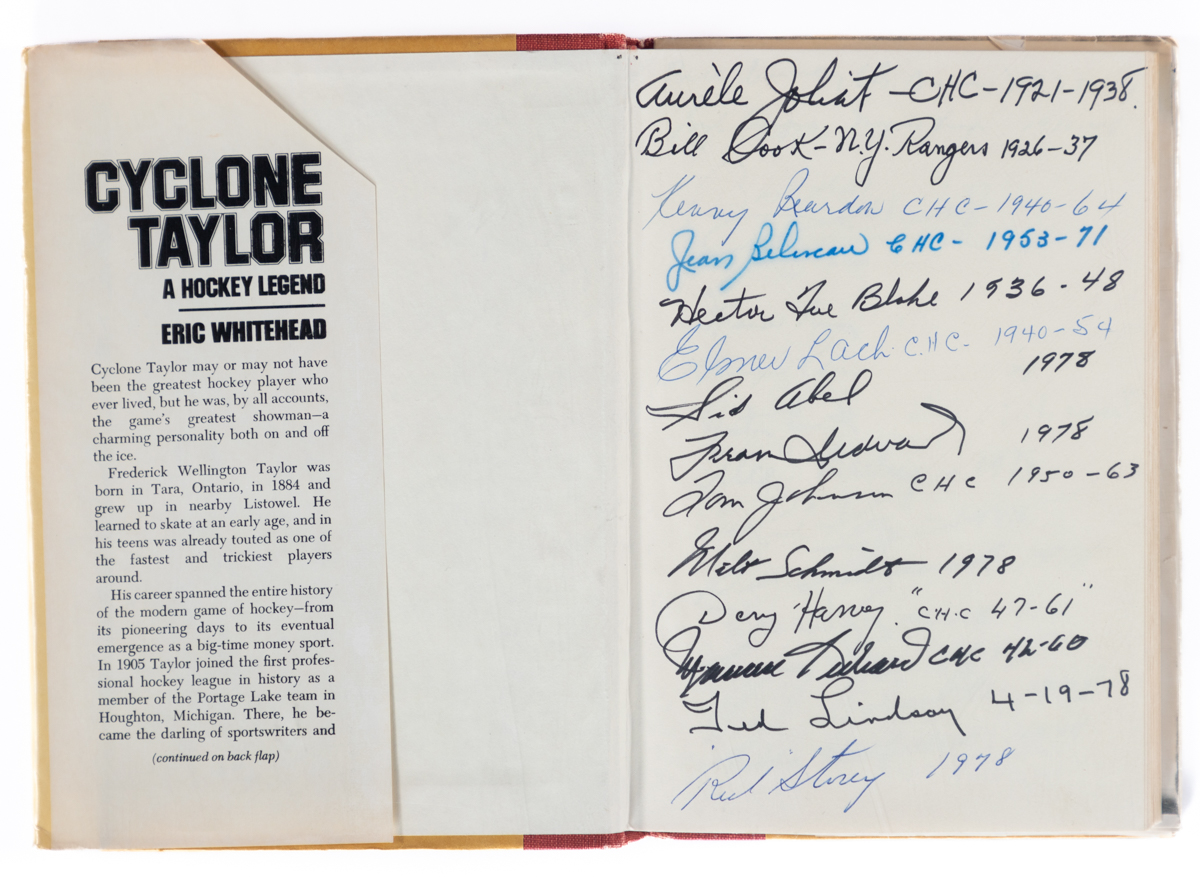 CYCLONE
TAYLOR
A HOCKEY LEGEND
ERIC WHITEHEAD
Cyclone Taylor may or may not have
been the greatest hockey player who
ever lived, but he was, by all accounts,
the game's greatest showman—a
charming personality both on and off
the ice.
Frederick Wellington Taylor was
born in Tara, Ontario, in 1884 and
grew up in nearby Listowel. He
learned to skate at an early age, and in
his teens was already touted as one of
the fastest and trickiest players
around.
His career spanned the entire history
of the modern game of hockey—from
its pioneering days to its eventual
emergence as a big-time money sport.
In 1905 Taylor joined the first profes-
sional hockey league in history as a
member of the Portage Lake team in
Houghton, Michigan. There, he be-
came the darling of sportswriters and
(continued on back flap)
Aurèle Joliat - CHC - 1921-1938.
Bill Cook - N.Y. Rangers 1926-37
Kenny Reardon CHC - 1940-64
Jean Beliveau CHC - 1953-71
Hector Toe Blake 1936-48
Elmer Lach C.H.C. - 1940-54
Sid Abel 1978
1978
Tom Johnson CHC 1950-63
Milt Schmidt 1978
Doug Harvey "C.H.C 47-61"
Maurice Richard CHC 42-60
Ted Lindsay 4-19-78
"Red" Storey 1978